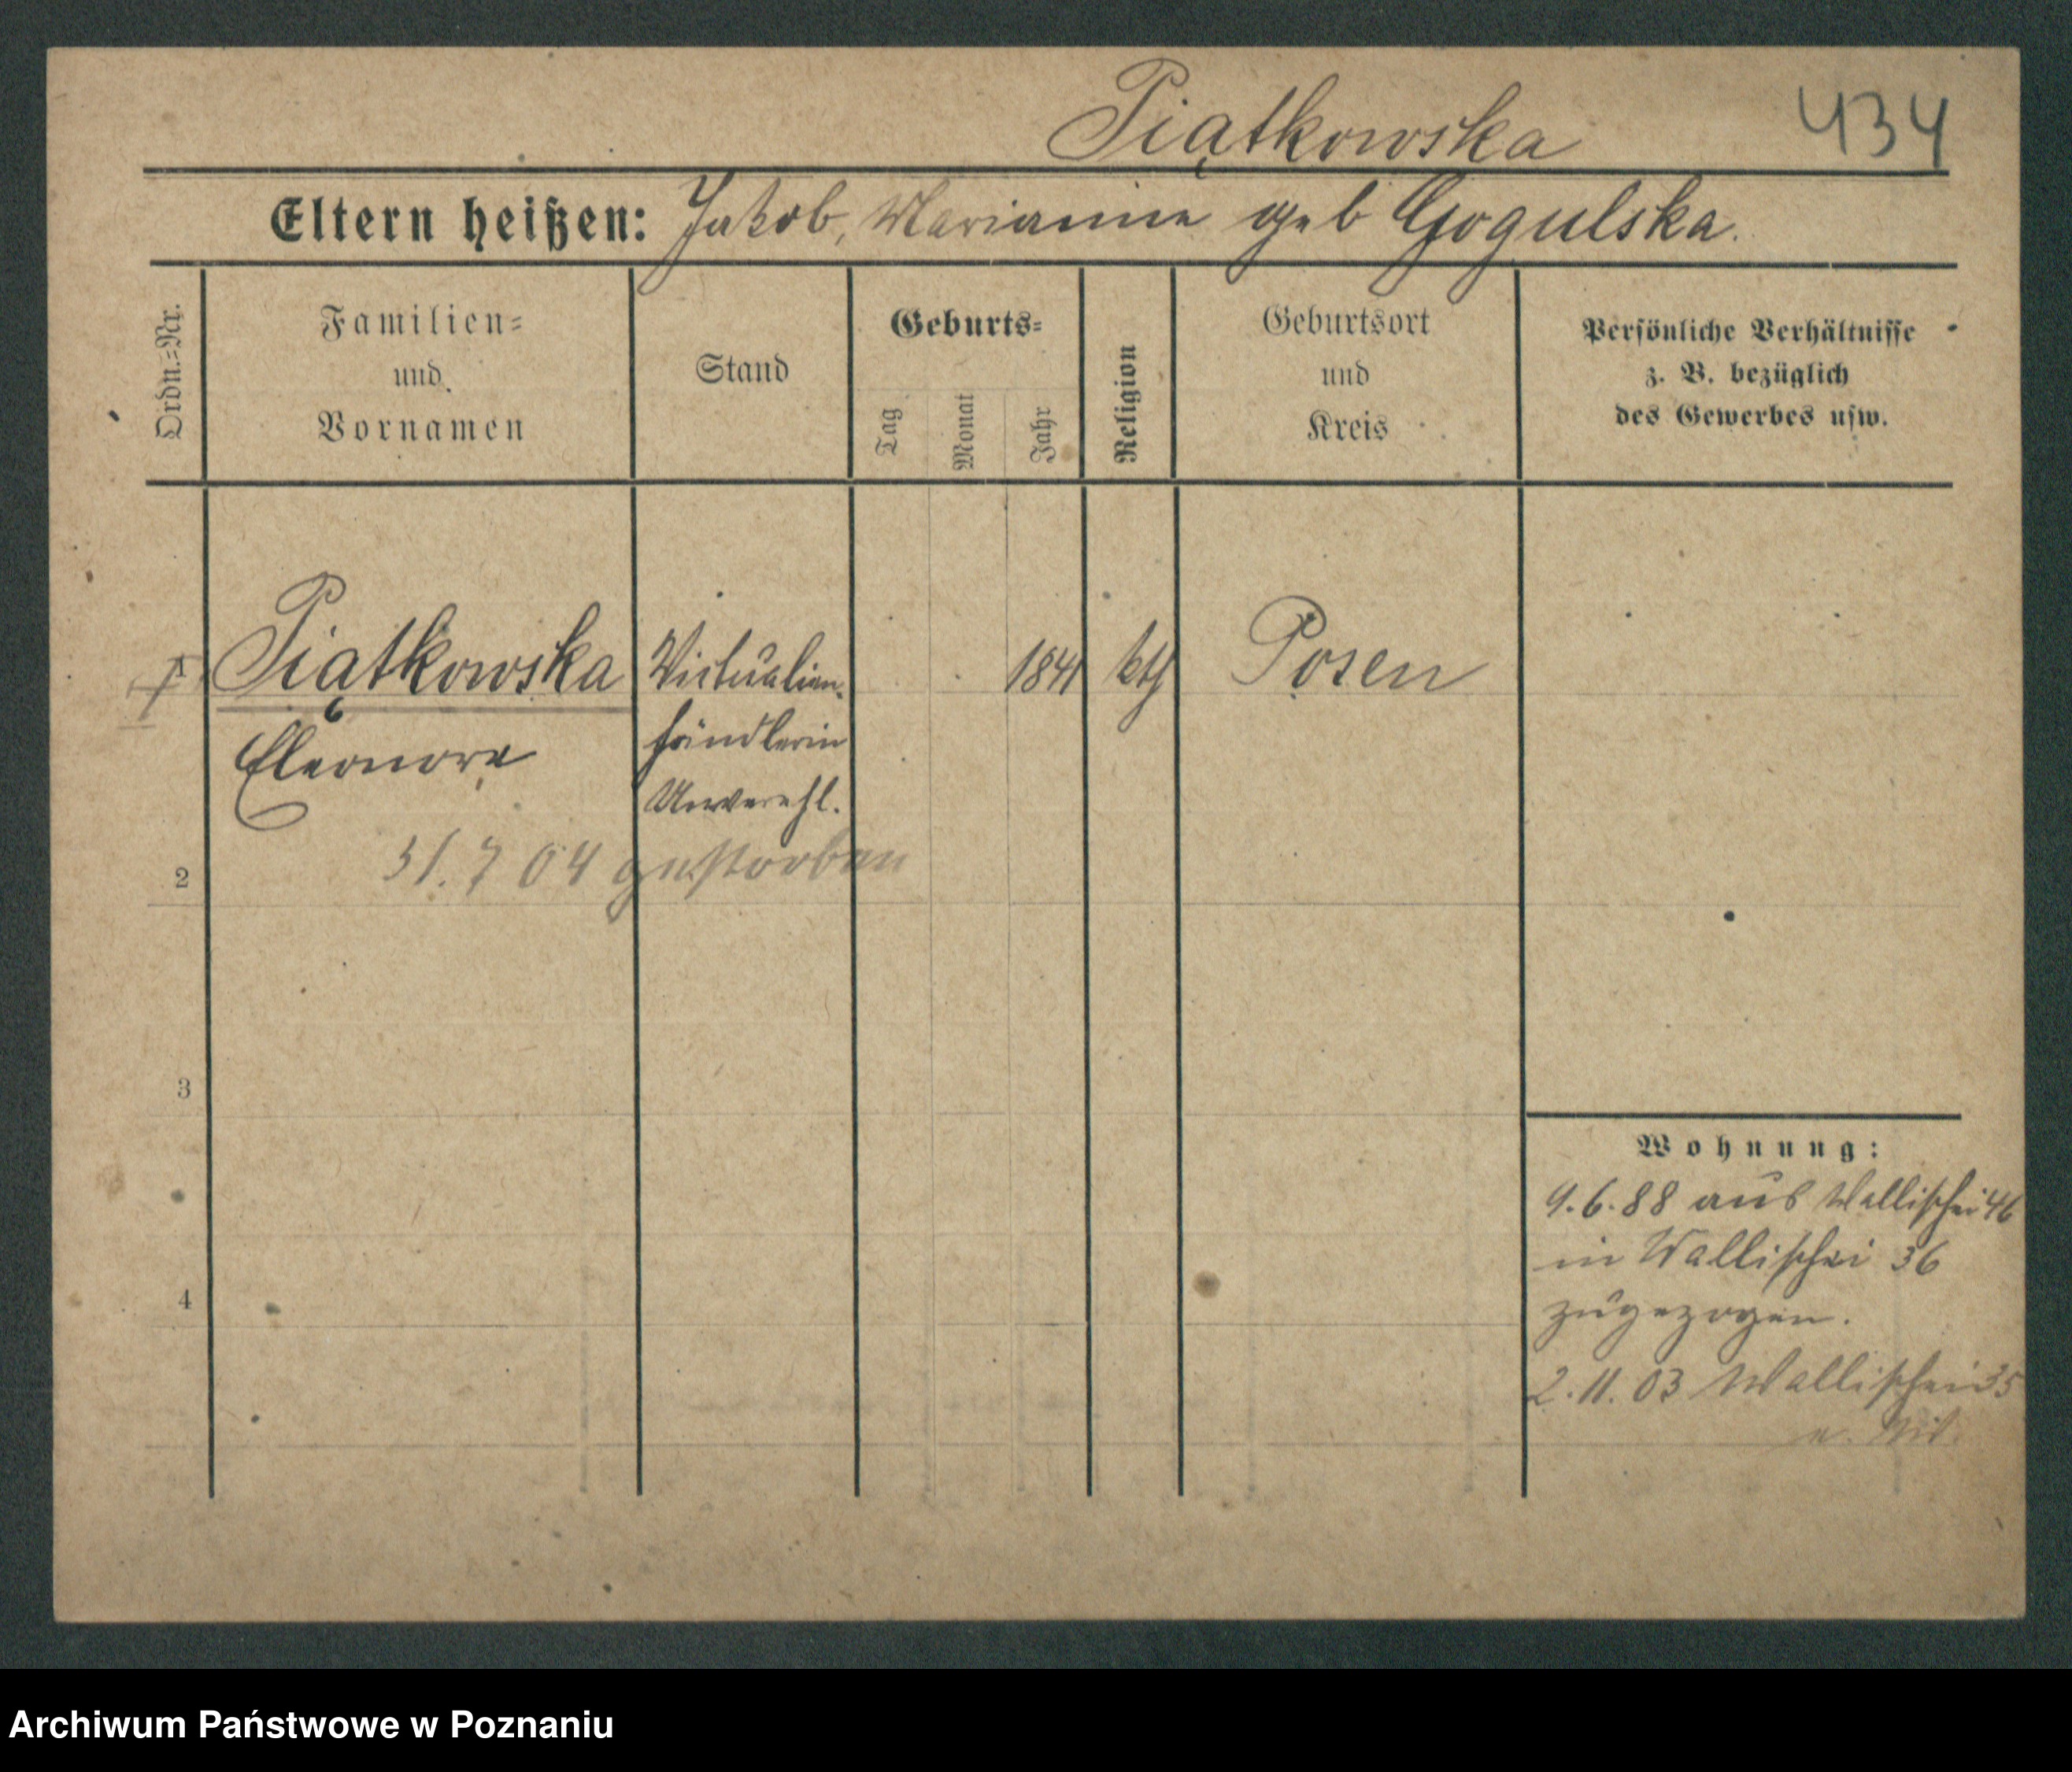 Piątkowska 434
Eltern heißen: Jakob, Marianne geb Gogulska.
Ordn.=Nr.
Familien=
und
Vornamen
Stand
Geburts=
Tag
Monat
Jahr
Religion
Geburtsort
und
Kreis
Persönliche Verhältnisse
z. B. bezüglich
des Gewerbes usw.
1 Piątkowska Victualien- 1841 kth Posen
Eleonore händlerin
Unverehl.
31.7 04 gestorben
2
3
4
Wohnung:
9.6.88 aus Wallischei 46
in Wallischei 36
zugezogen.
2.11.03 Wallischei 35
Archiwum Państwowe w Poznaniu